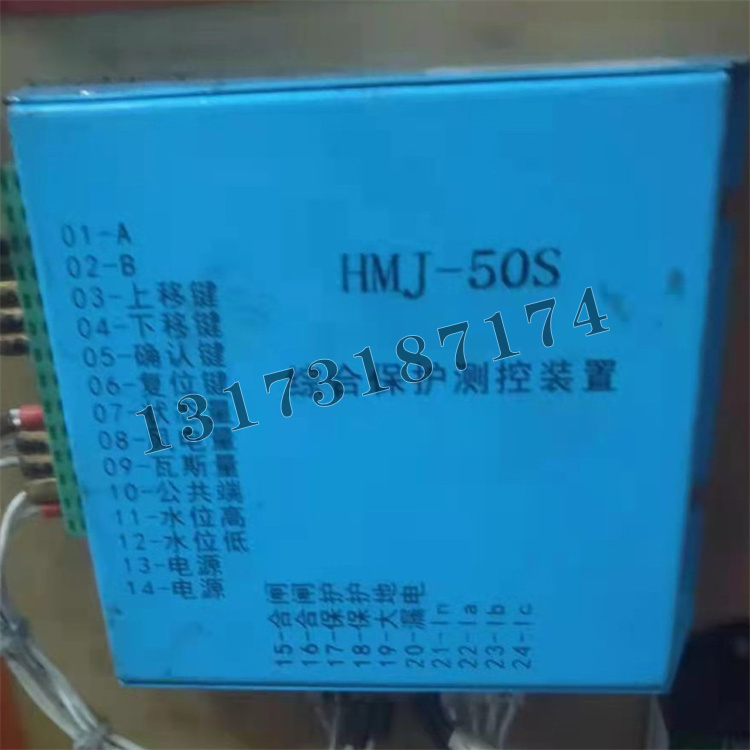 01-A
02-B
03-上移键
04-下移键
05-确认键
06-复位键
07-量
08-风电量
09-瓦斯量
10-公共端
11-水位高
12-水位低
13-电源
14-电源
HMJ-50S
综合保护测控装置
13173187174
15-合闸
16-合闸
17-保护
18-保护
19-大地
20-漏电
21-In
22-Ia
23-Ib
24-Ic